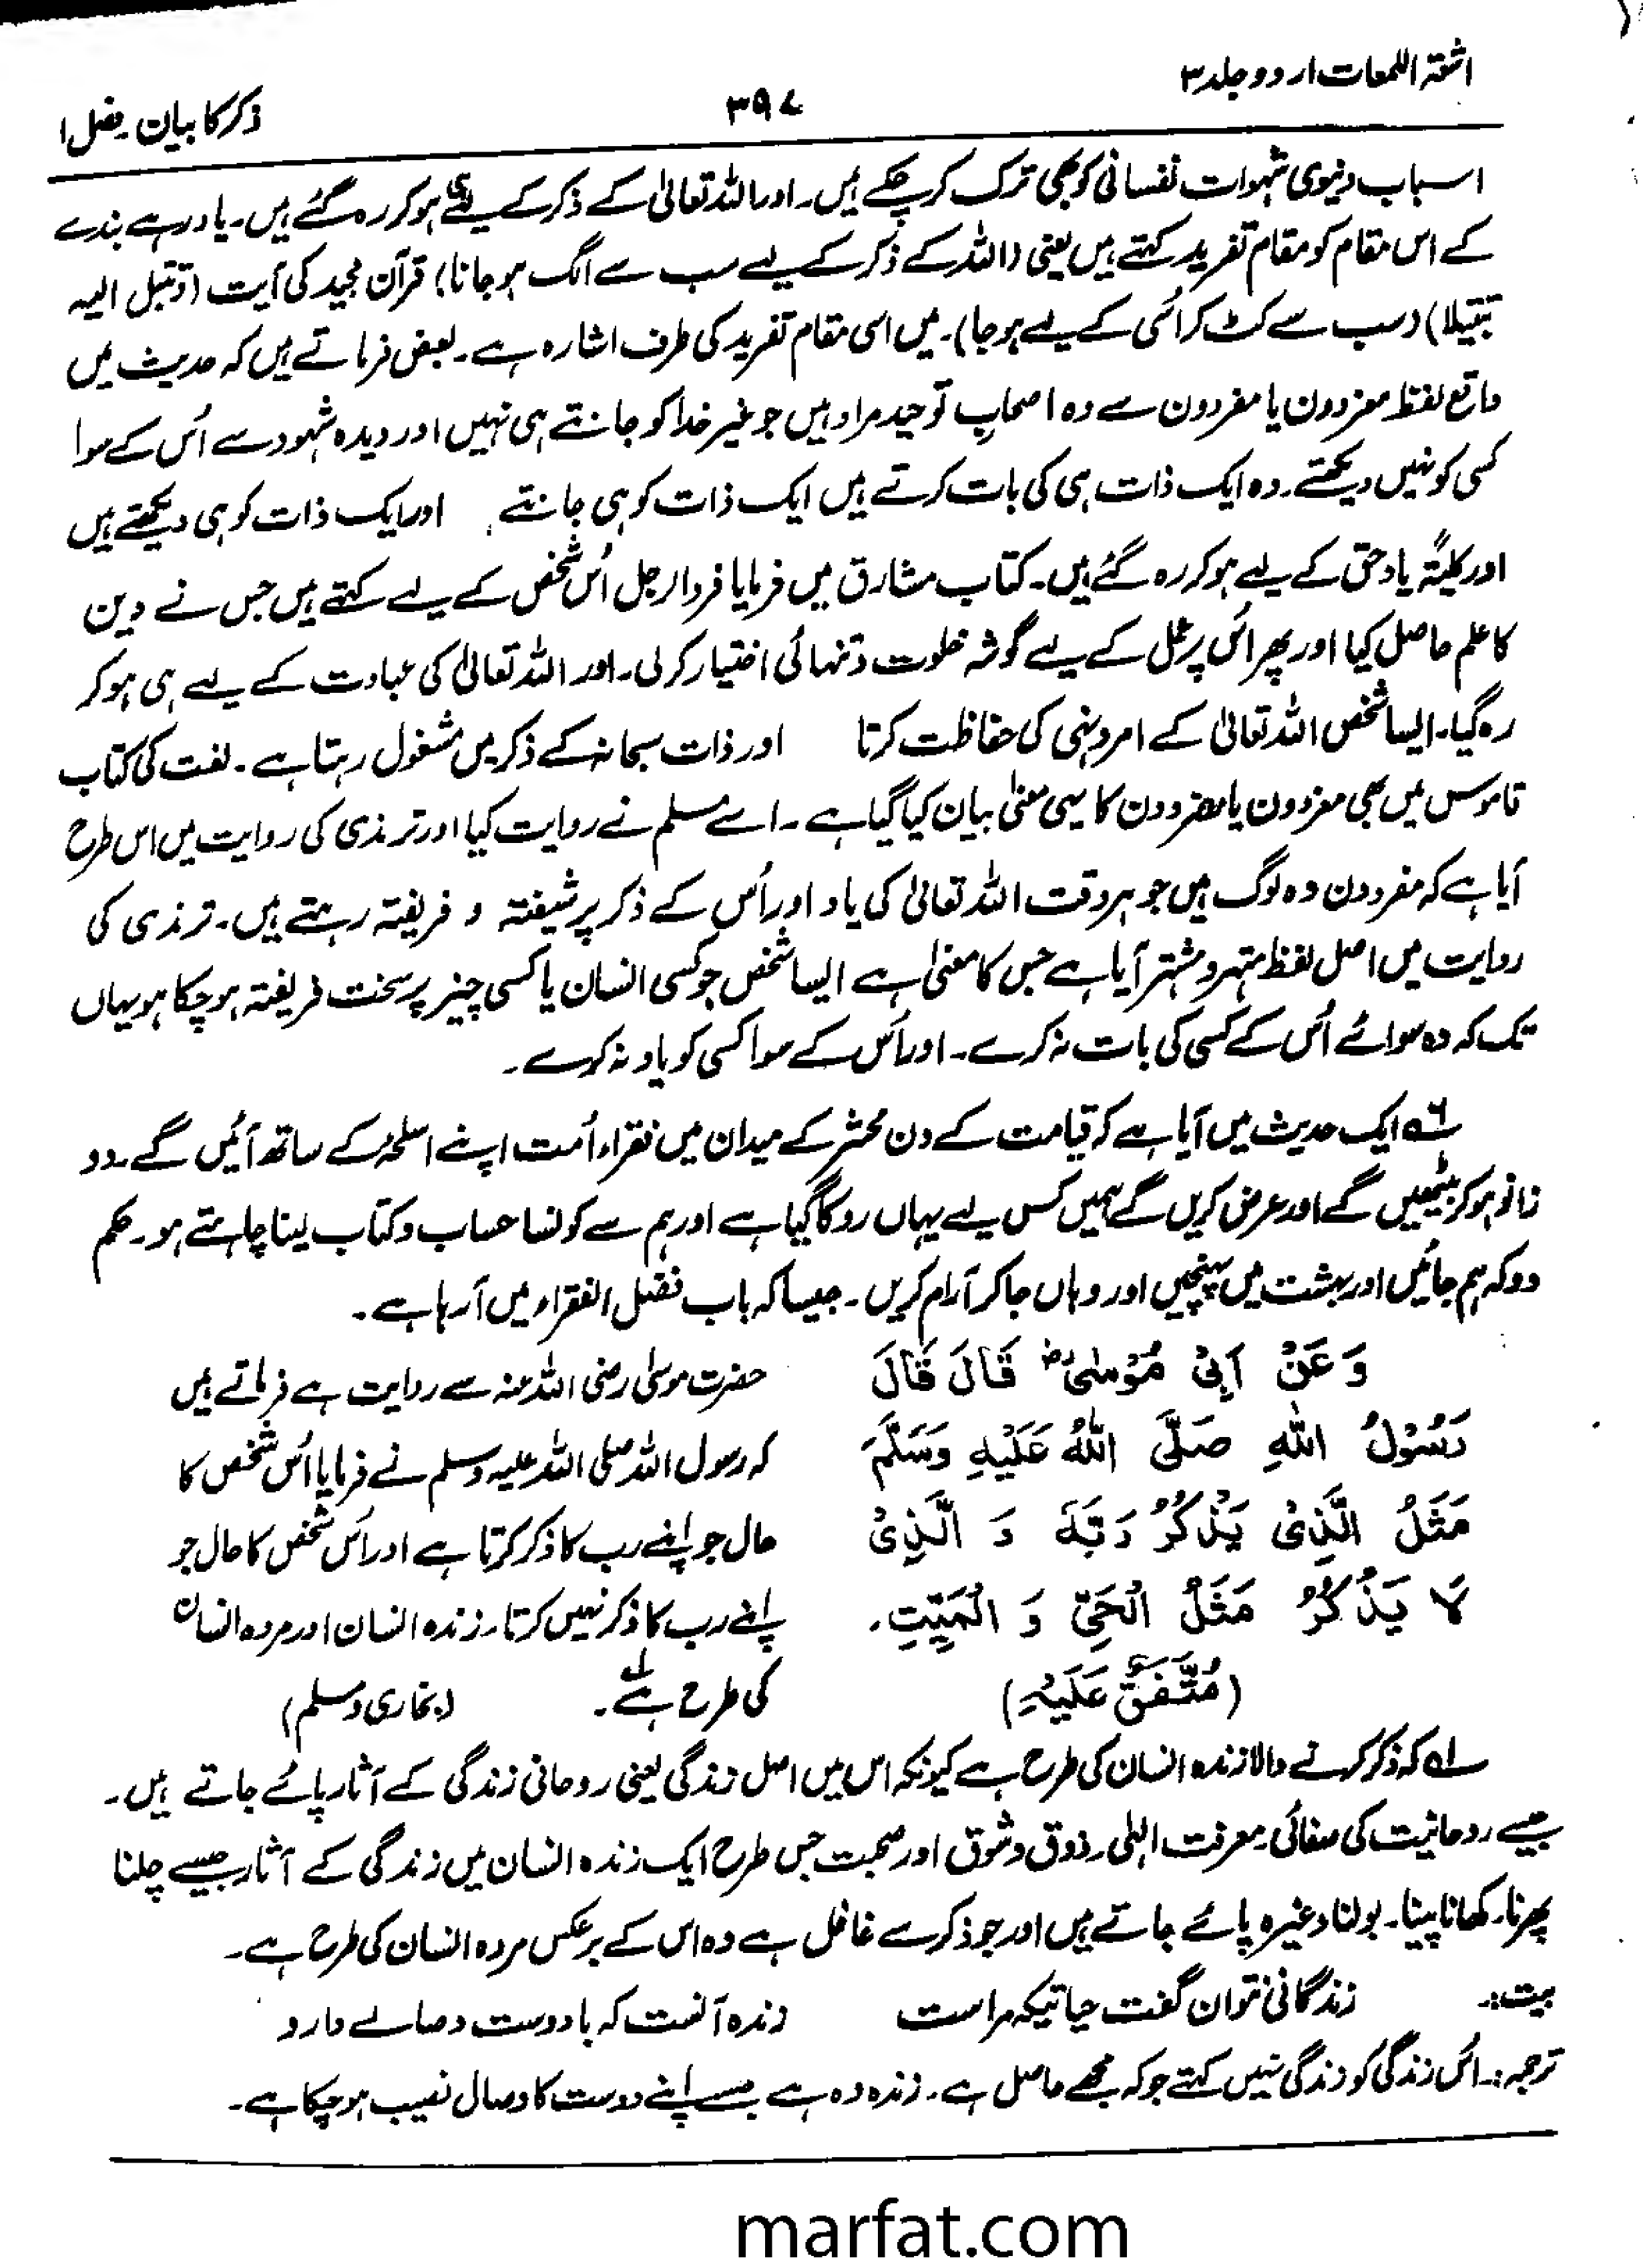 اشعۃ اللمعات اردو جلد ۳
۳۹۷
ذکر کا بیان ۔ فصل ۱
اسباب دنیوی شہوات نفسانی کو بھی ترک کر چکے ہیں۔ اور اللہ تعالیٰ کے ذکر کے لیے ہی ہو کر رہ گئے ہیں۔ یاد رہے بندے
کے اس مقام کو مقام تفرید کہتے ہیں یعنی (اللہ کے ذکر کے لیے سب سے الگ ہو جانا) قرآن مجید کی آیت (وتبتل الیہ
تبتیلا) (سب سے کٹ کر اُسی کے لیے ہو جا)۔ میں اسی مقام تفرید کی طرف اشارہ ہے۔ بعض فرماتے ہیں کہ حدیث میں
واقع لفظ مفردون یا مفردون سے وہ اصحابِ توحید مراد ہیں جو غیر خدا کو جانتے ہی نہیں اور دیدہ شہود سے اُس کے سوا
کسی کو نہیں دیکھتے۔ وہ ایک ذات ہی کی بات کرتے ہیں ایک ذات کو ہی جانتے اور ایک ذات کو ہی دیکھتے ہیں
اور کلیۃً یاد حق کے لیے ہو کر رہ گئے ہیں۔ کتاب مشارق میں فرمایا فرد الرجل اُس شخص کے لیے کہتے ہیں جس نے دین
کا علم حاصل کیا اور پھر اس پر عمل کے لیے گوشہ خلوت و تنہائی اختیار کر لی۔ اور اللہ تعالیٰ کی عبادت کے لیے ہی ہو کر
رہ گیا۔ ایسا شخص اللہ تعالیٰ کے امر و نہی کی حفاظت کرتا اور ذات سبحانہ کے ذکر میں مشغول رہتا ہے۔ لغت کی کتاب
قاموس میں بھی مفردون یا مفردون کا یہی معنیٰ بیان کیا گیا ہے۔ اسے مسلم نے روایت کیا اور ترمذی کی روایت میں اس طرح
آیا ہے کہ مفردون وہ لوگ ہیں جو ہر وقت اللہ تعالیٰ کی یاد اور اُس کے ذکر پر شیفتہ و فریفتہ رہتے ہیں۔ ترمذی کی
روایت میں اصل لفظ متہر و مشتہر آیا ہے جس کا معنیٰ ہے ایسا شخص جو کسی انسان یا کسی چیز پر سخت فریفتہ ہو چکا ہو یہاں
تک کہ وہ سوائے اُس کے کسی کی بات نہ کرے۔ اور اُس کے سوا کسی کو یاد نہ کرے۔
۶؎ ایک حدیث میں آیا ہے کہ قیامت کے دن محشر کے میدان میں فقراء اُمت اپنے اسلحہ کے ساتھ آئیں گے۔ دو
زانو ہو کر بیٹھیں گے اور عرض کریں گے ہمیں کس لیے یہاں روکا گیا ہے اور ہم سے کونسا حساب و کتاب لینا چاہتے ہو۔ حکم
دو کہ ہم جائیں اور بہشت میں پہنچیں اور وہاں جا کر آرام کریں۔ جیسا کہ باب فضل الفقراء میں آ رہا ہے۔
وَ عَنْ اَبِیْ مُوْسٰیؓ قَالَ قَالَ
رَسُوْلُ اللّٰهِ صَلَّی اللّٰهُ عَلَیْهِ وَسَلَّمَ
مَثَلُ الَّذِیْ یَذْکُرُ رَبَّهٗ وَ الَّذِیْ
لَا یَذْکُرُ مَثَلُ الْحَیِّ وَ الْمَیِّتِ۔
(مُتَّفَقٌ عَلَیْهِ)
حضرت موسٰی رضی اللہ عنہ سے روایت ہے فرماتے ہیں
کہ رسول اللہ صلی اللہ علیہ وسلم نے فرمایا اُس شخص کا
حال جو اپنے رب کا ذکر کرتا ہے اور اُس شخص کا حال جو
اپنے رب کا ذکر نہیں کرتا۔ زندہ انسان اور مردہ انسان
کی طرح ہے۱؎۔ (بخاری و مسلم)
۱؎ کہ ذکر کرنے والا زندہ انسان کی طرح ہے کیونکہ اس میں اصل زندگی یعنی روحانی زندگی کے آثار پائے جاتے ہیں۔
جیسے روحانیت کی صفائی۔ معرفت الٰہی۔ ذوق و شوق اور محبت جس طرح ایک زندہ انسان میں زندگی کے آثار جیسے چلنا
پھرنا۔ کھانا پینا۔ بولنا وغیرہ پائے جاتے ہیں اور جو ذکر سے غافل ہے وہ اس کے برعکس مردہ انسان کی طرح ہے۔
بیت:۔ زندگانی نتوان گفت حیاتیکہ مراست زندہ آنست کہ با دوست وصالے دارد
ترجمہ:۔ اُس زندگی کو زندگی نہیں کہتے جو کہ مجھے حاصل ہے۔ زندہ وہ ہے جسے اپنے دوست کا وصال نصیب ہو چکا ہے۔
marfat.com